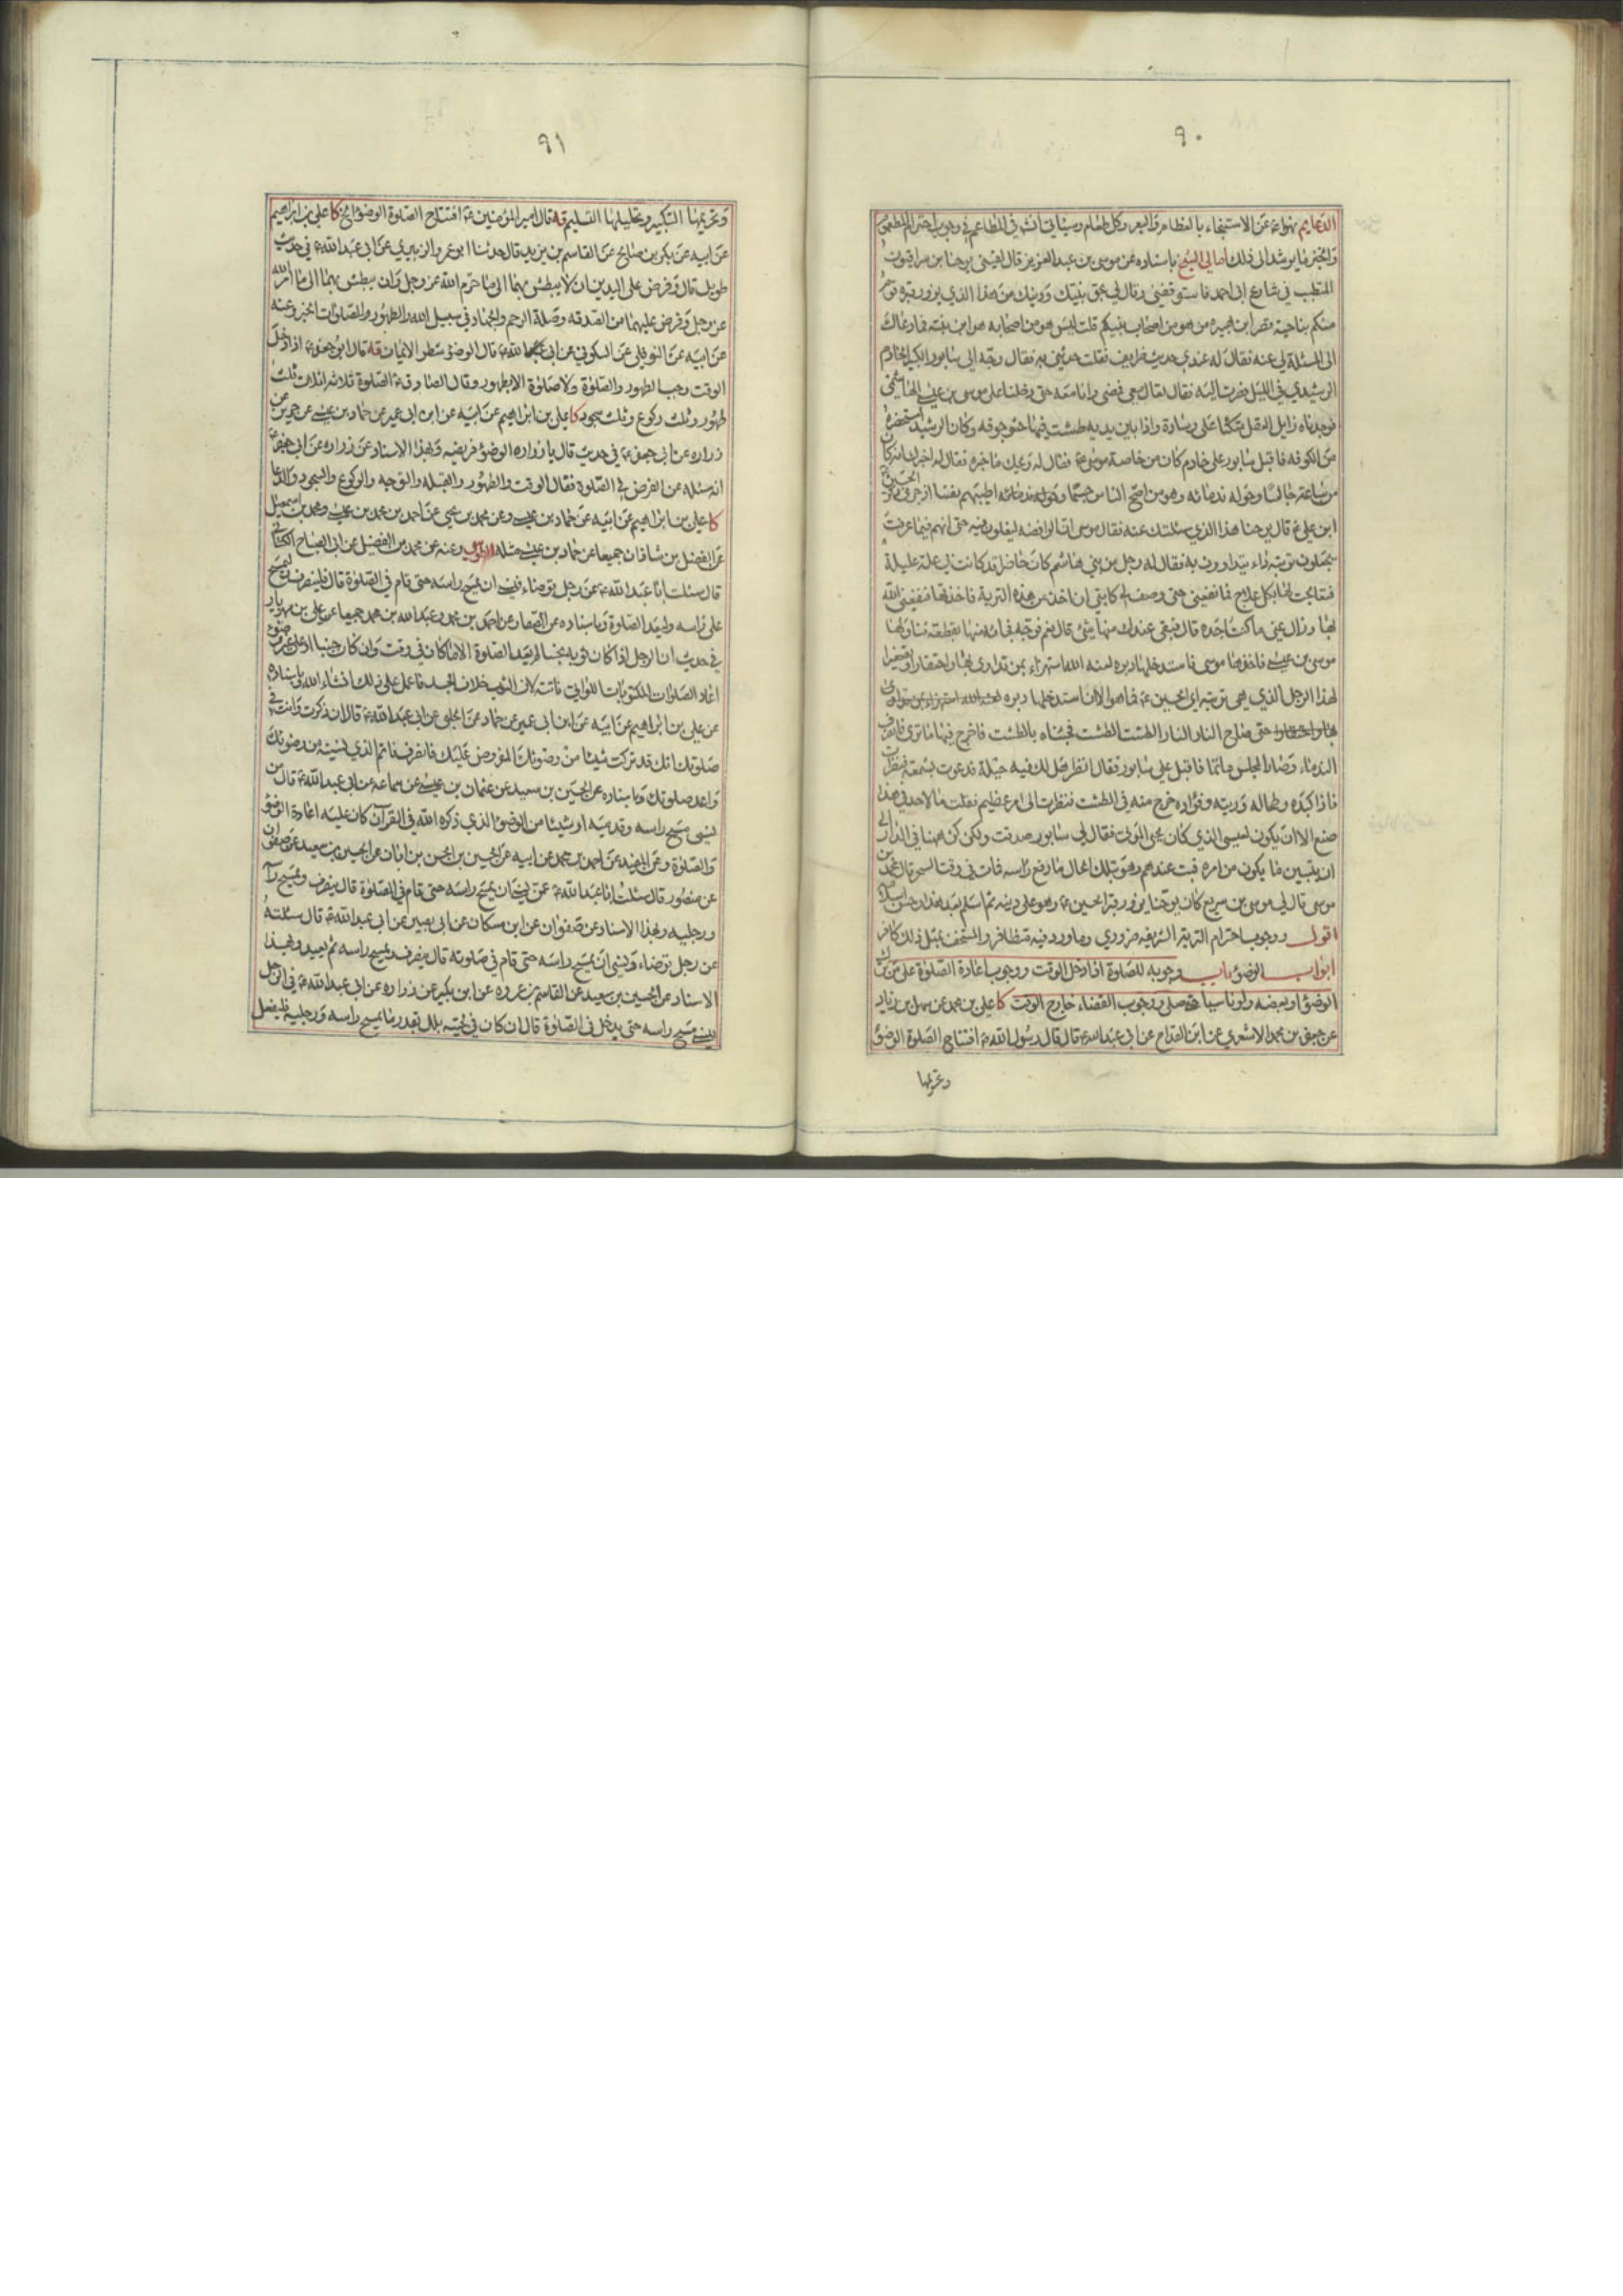 ٩٠
الدعايم نهواعۤ عن الاستنجاء بالعظام والبعر وكل طعام وسياتي انشۤ في المطاعم في وجوب احترام المطعوم
والخبز ما يرشد الى ذلك امالي الشيخ باسناده عن موسى بن عبد العزيز قال لقيني يوحنا بن سراقيون
المتطبب في شارع ابي احمد فاستوقفني وقال لي بحق نبيك ودينك من هذا الذي يزور قبره قوم
منكم بناحية قصر ابن هبيره من هو من اصحاب نبيكم قلت ليس هو من اصحابه هو ابن بنته فما دعاك
الى المسئلة لي عنه فقال له عندي حديث طريف فقلت حدثني به فقال وجه الى سابور الكبير الخادم
الرشيدي في الليل فصرت اليه فقال تعال معي فمضى وانا معه حتى دخلنا على موسى بن عيسى الهاشمي
فوجدناه زايل العقل متكئا على وسادة واذا بين يديه طشت فيها حشو جوفه وكان الرشيد استحضره
من الكوفه فاقبل سابور على خادم كان من خاصة موسى فقال له ويحك ما خبره فقال له اخبرك انه كان
من ساعته جالسا وحوله ندمائه وهو من اصح الناس جسما واطيبهم نفسا اذ جرى ذكر الحسين
ابن علي عۤ قال يوحنا هذا الذي سئلتك عنه فقال موسى ان الرافضه ليغلون فيه حتى انهم فيما عرفت
يجعلون تربته دواء يتداوون به فقال له رجل من بني هاشم كان حاضرا قد كانت بي علة غليلة
فتعالجت لها بكل علاج فما نفعني حتى وصف لي كاتبي ان اخذ من هذه التربة فاخذتها فنفعني الله
بها وزال عني ما كنت اجده قال فبقي عندك منها شئ قال نعم فوجه فجائه منها بقطعة فناولها
موسى بن عيسى فاخذها موسى فاستدخلها دبره لعنه الله استهزاء بمن تداوى بها واحتقارا وتصغيرا
لهذا الرجل الذي هي تربته اي الحسين عۤ فما هو الا ان استدخلها دبره
حتى صاح النار النار الطشت الطشت فجئناه بالطشت فاخرج فيها ما ترى فانصرف
الندماء وصار المجلس ماتما فاقبل على سابور فقال انظر هل لك فيه حيلة فدعوت بشمعة فنظرت
فاذا كبده وطحاله وريته وفؤاده خرج منه في الطشت فنظرت الى امر عظيم فقلت ما لاحد في هذا
صنع الا ان يكون لعيسى الذي كان يحيي الموتى فقال لي سابور صدقت ولكن كن ههنا في الدار الى
ان يتبين ما يكون من امره فبت عندهم وهو بتلك الحال ما رفع راسه فمات في وقت السحر قال محمد بن
موسى قال لي موسى بن سريع كان يوحنا يزور قبر الحسين عۤ وهو على دينه ثم اسلم بعد هذا وحسن اسلامه
اقول ووجوب احترام التربة الشريفه ضروري وما ورد فيه متظافر والمستخف بمثل ذلك كافر
ابواب الوضوء باب وجوبه للصلوة اذا دخل الوقت ووجوب اعادة الصلوة على من ترك
الوضوء او بعضه ولو ناسيا حتى صلى ووجوب القضاء خارج الوقت كا علي بن محمد عن سهل بن زياد
عن جعفر بن محمد الاشعري عن ابن القداح عن ابي عبد الله عۤ قال قال رسول الله صۤ افتتاح الصلوة الوضوء
وتحريمها
٩١
وتحريمها التكبير وتحليلها التسليم قه قال امير المؤمنين عۤ افتتاح الصلوة الوضوء الخ كا علي بن ابراهيم
عن ابيه عن بكر بن صالح عن القاسم بن يزيد قال حدثنا ابو عمرو الزبيري عن ابي عبد الله عۤ في حديث
طويل قال وفرض على اليدين ان لا يبطش بهما الى ما حرم الله عز وجل وان يبطش بهما الى ما امر الله
عز وجل وفرض عليهما من الصدقه وصلة الرحم والجهاد في سبيل الله والطهور والصلوات الخبر وعنه
عن ابيه عن النوفلي عن السكوني عن ابي عبد الله عۤ قال الوضوء شطر الايمان قه قال ابو جعفر عۤ اذا دخل
الوقت وجب الطهور والصلوة ولا صلوة الا بطهور وقال الصادق عۤ الصلوة ثلاثه اثلاث ثلث
طهور وثلث ركوع وثلث سجود كا علي بن ابراهيم عن ابيه عن ابن ابي عمير عن حماد بن عيسى عن حريز عن
زراره عن ابي جعفر عۤ في حديث قال يا زراره الوضوء فريضه وبهذا الاسناد عن زراره عن ابي جعفر عۤ
انه سئله عن الفرض في الصلوة فقال الوقت والطهور والقبله والتوجه والركوع والسجود والدعا
كا علي بن ابراهيم عن ابيه عن حماد بن عيسى وعن محمد بن يحيى عن احمد بن محمد بن عيسى ومحمد بن اسمعيل
عن الفضل بن شاذان جميعا عن حماد بن عيسى مثله وعنه عن محمد بن الفضيل عن ابي الصباح الكناني
قال سئلت ابا عبد الله عۤ عن رجل توضاء فنسي ان يمسح راسه حتى قام في الصلوة قال فلينصرف فليمسح
على راسه وليعد الصلوة وباسناده عن الصفار عن احمد بن محمد وعبد الله بن محمد جميعا عن علي بن مهزيار
في حديث ان الرجل اذا كان ثوبه نجسا لم يعد الصلوة الا ما كان في وقت وان كان جنبا او على غير وضوء
اعاد الصلوات المكتوبات اللواتي فاتته لان الثوب خلاف الجسد فاعمل على ذلك انشاء الله وباسناده
عن علي بن ابراهيم عن ابيه عن ابن ابي عمير عن حماد عن الحلبي عن ابي عبد الله عۤ قال ان ذكرت وانت في
صلوتك انك قد تركت شيئا من وضوئك المفروض عليك فانصرف فاتم الذي نسيته من وضوئك
واعد صلوتك وباسناده عن الحسين بن سعيد عن عثمان بن عيسى عن سماعه عن ابي عبد الله عۤ قال من
نسي مسح راسه وقدميه او شيئا من الوضوء الذي ذكره الله في القرآن كان عليه اعادة الوضوء
والصلوة وعن المفيد عن احمد بن محمد عن ابيه عن الحسين بن الحسن بن ابان عن الحسين بن سعيد عن صفوان
عن منصور قال سئلت ابا عبد الله عۤ عمن نسي ان يمسح راسه حتى قام في الصلوة قال ينصرف ويمسح راسه
ورجليه وبهذا الاسناد عن صفوان عن ابن مسكان عن ابي بصير عن ابي عبد الله عۤ قال سئلته
عن رجل توضاء ونسي ان يمسح راسه حتى قام في صلوته قال ينصرف ويمسح راسه ثم يعيد وبهذا
الاسناد عن الحسين بن سعيد عن القاسم بن عروه عن ابن بكير عن زراره عن ابي عبد الله عۤ في الرجل
ينسى مسح راسه حتى يدخل في الصلوة قال ان كان في لحيته بلل بقدر ما يمسح راسه ورجليه فليفعل